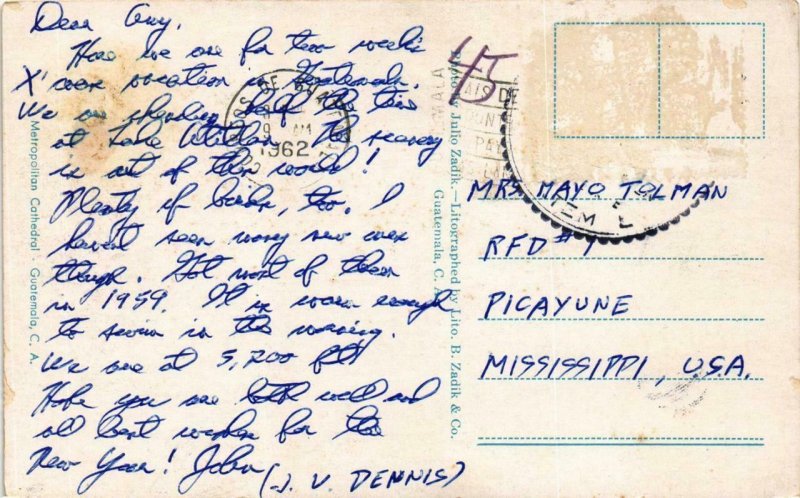 Dear Guy,
Here we are for two weeks
X'mas vacation in Guatemala.
We are spending half the time
at Lake Atitlan. The scenery
is out of this world!
Plenty of birds, too. I
haven't seen many new ones
though. Got most of them
in 1959. It is warm enough
to swim in the morning.
We are at 5,200 ft!
Hope you are both well and
all best wishes for the
New Year! John
(J. V. DENNIS)
Metropolitan Cathedral - Guatemala, C. A.
1962
Photo by Julio Zadik.—Litographed by Lito. B. Zadik & Co.
Guatemala, C. A.
45
MRS MAYO TOLMAN
RFD #1
PICAYUNE
MISSISSIPPI, USA.